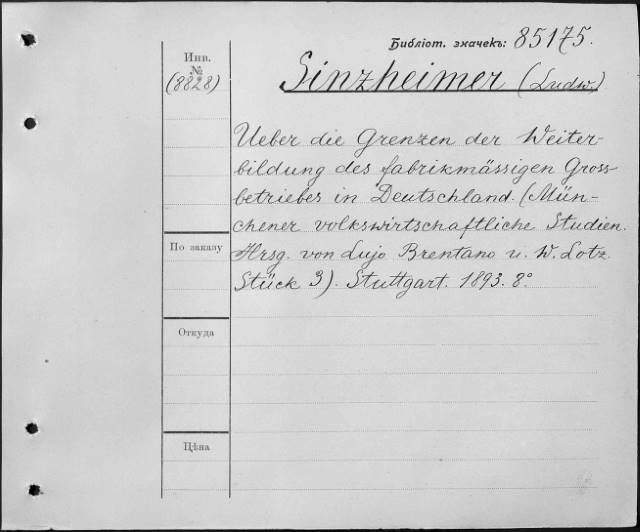 Библіот. значекъ: 85175.
Инв.
№
(8828)
Sinzheimer (Ludw.)
Ueber die Grenzen der Weiter-
bildung des fabrikmässigen Gross
betriebes in Deutschland. (Mün-
chener volkswirtschaftliche Studien.
Hrsg. von Lujo Brentano u. W. Lotz.
Stück 3). Stuttgart. 1893. 8°
По заказу
Откуда
Цѣна